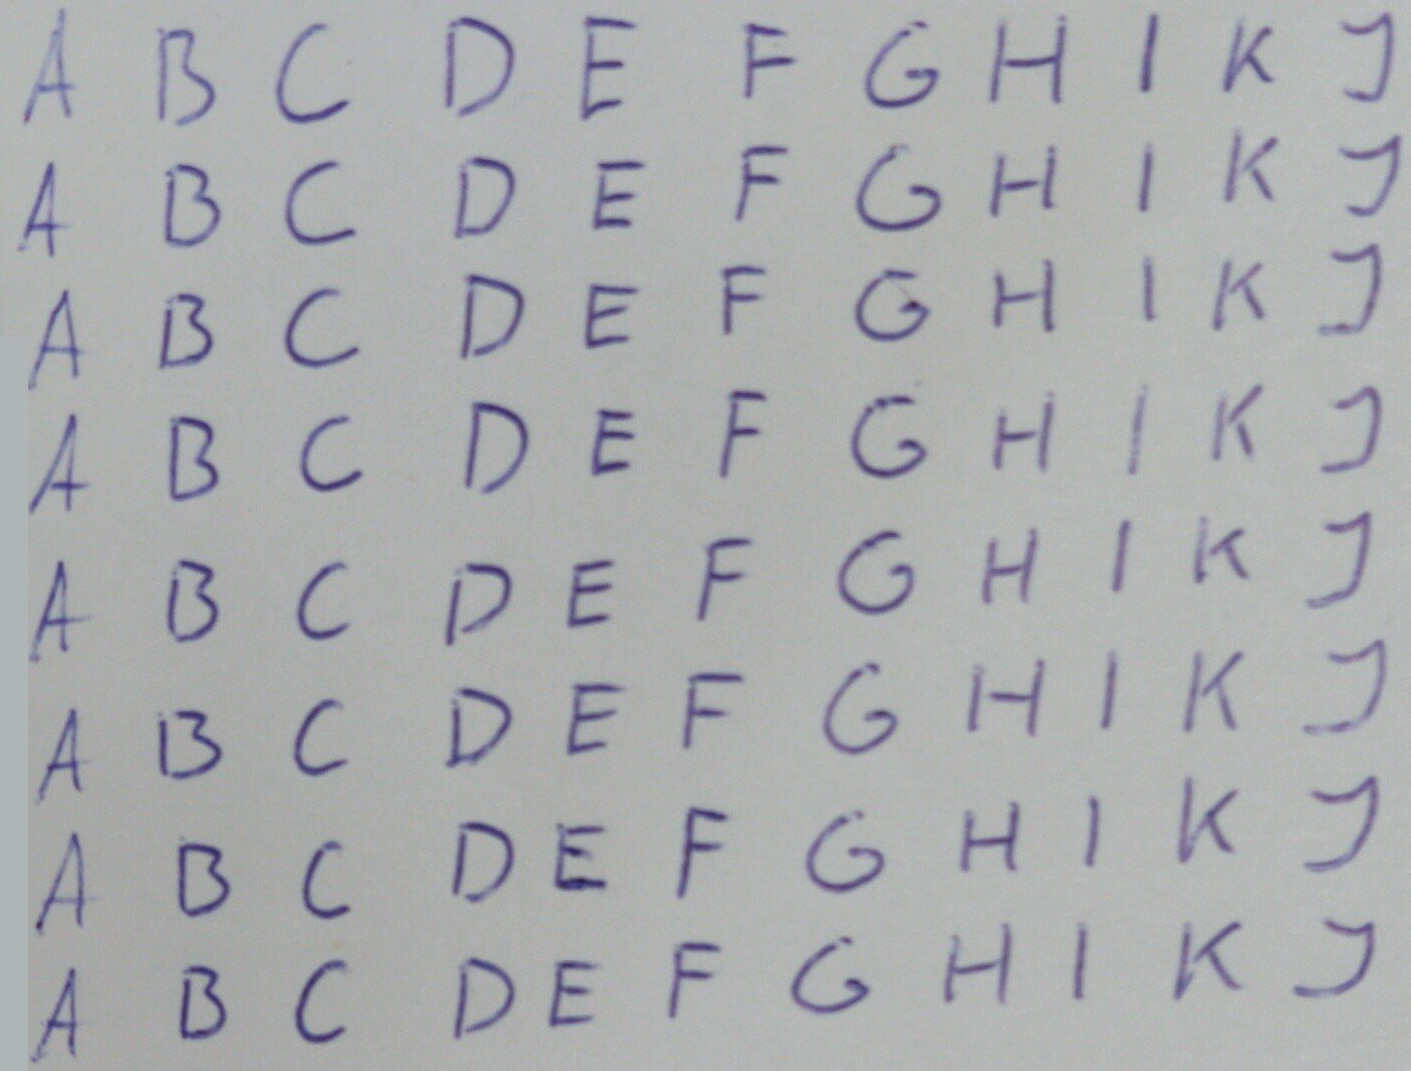 A B C D E F G H I K J
A B C D E F G H I K J
A B C D E F G H I K J
A B C D E F G H I K J
A B C D E F G H I K J
A B C D E F G H I K J
A B C D E F G H I K J
A B C D E F G H I K J